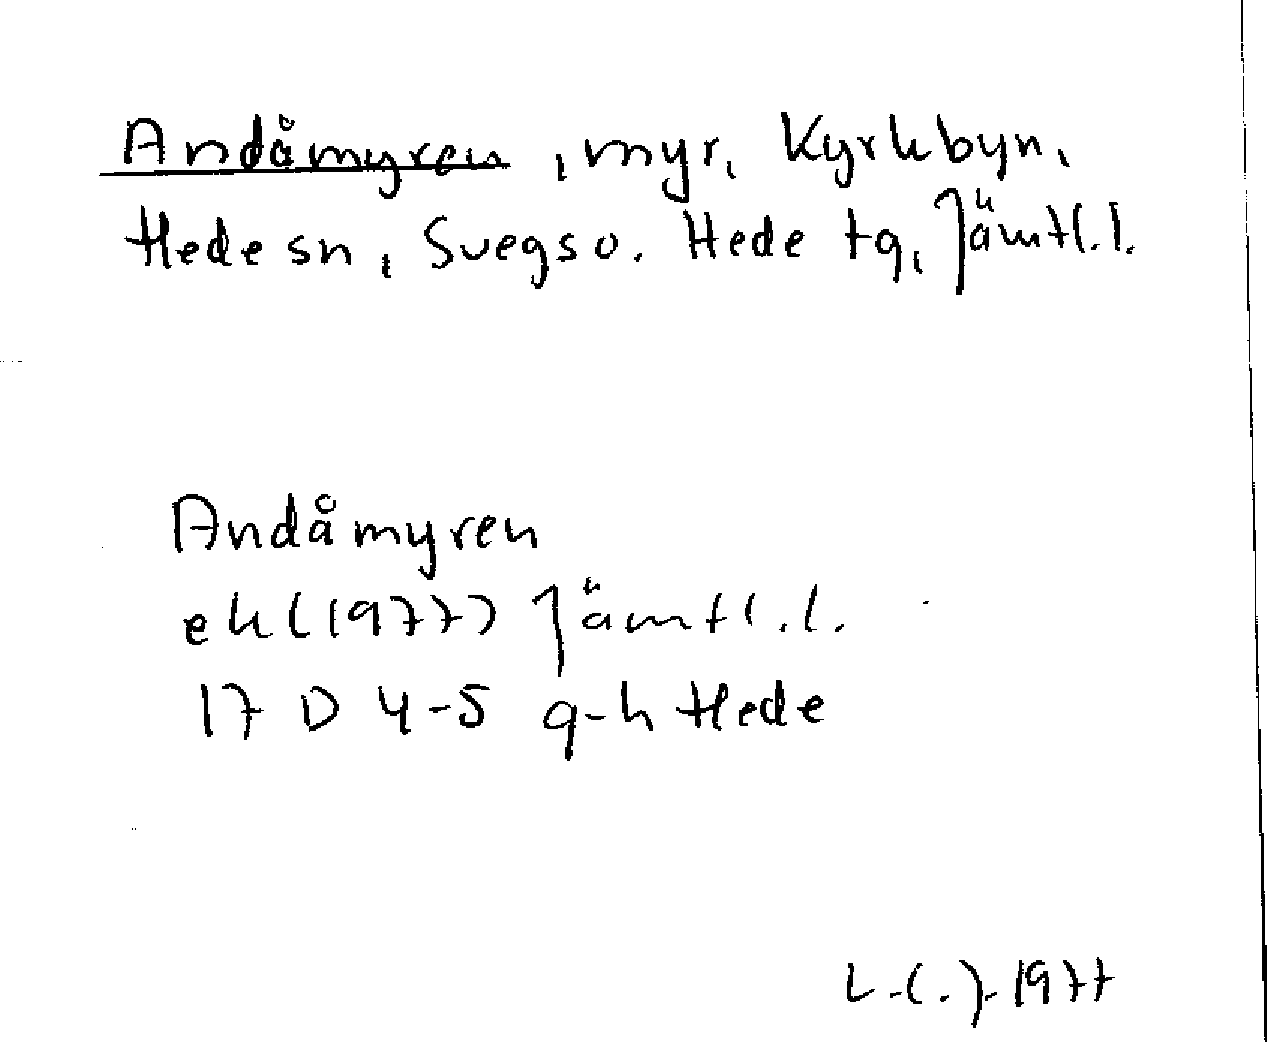 Andåmyren, myr, Kyrkbyn,
Hede sn, Svegs o. Hede tg, Jämtl. l.
Andåmyren
ek (1977) Jämtl. l.
17 D 4-5 g-h Hede
1977